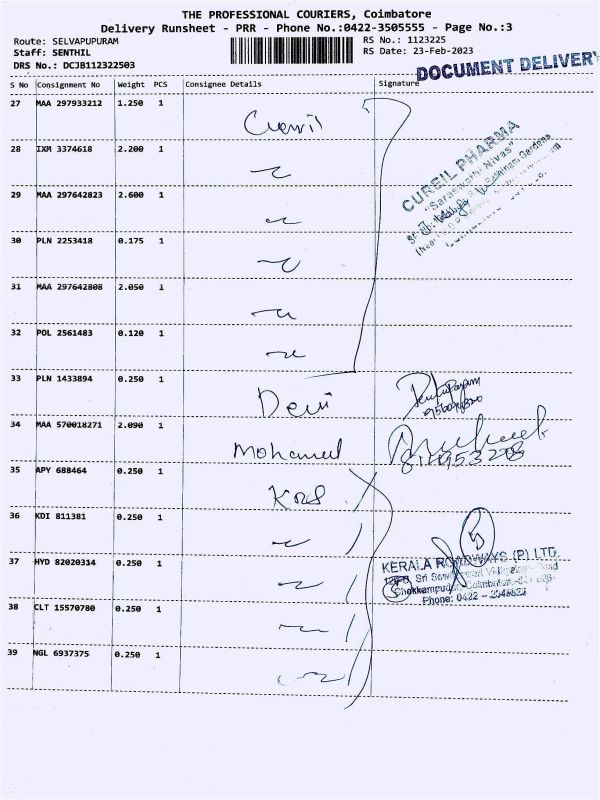 THE PROFESSIONAL COURIERS, Coimbatore
Delivery Runsheet - PRR - Phone No.:0422-3505555 - Page No.:3
Route: SELVAPUPURAM
Staff: SENTHIL
DRS No.: DCJB112322503
RS No.: 1123225
RS Date: 23-Feb-2023
DOCUMENT DELIVERY
S No Consignment No Weight PCS Consignee Details Signature
27 MAA 297933212 1.250 1
28 IXM 3374618 2.200 1
29 MAA 297642823 2.600 1
30 PLN 2253418 0.175 1
31 MAA 297642808 2.050 1
32 POL 2561483 0.120 1
33 PLN 1433894 0.250 1 Devi
34 MAA 570018271 2.090 1 Mohamed
35 APY 688464 0.250 1
36 KDI 811381 0.250 1
37 HYD 82020314 0.250 1
38 CLT 15570780 0.250 1
39 NGL 6937375 0.250 1
CUREIL PHARMA
"Saraswathi Nivas"
Gardens
KERALA ROADWAYS (P) LTD.
Sri
Phone: 0422 -